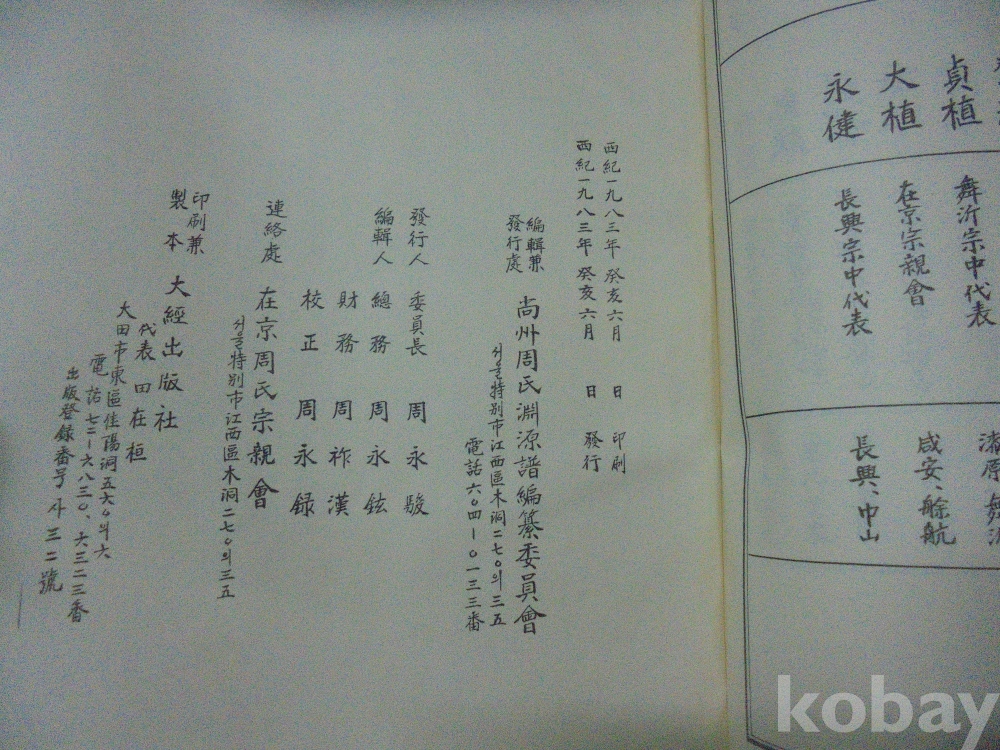 貞植
大植
永健
舞沂宗中代表
在京宗親會
長興宗中代表
咸安、艅航
長興、中山
西紀一九八三年 癸亥六月 日 印刷
西紀一九八三年 癸亥六月 日 發行
編輯兼
發行處
尙州周氏淵源譜編纂委員會
서울特別市江西區木洞二七○의三五
電話 六○四-○一三三番
發行人 委員長 周永駿
編輯人 總務 周永鉉
財務 周祚漢
校正 周永録
連絡處 在京周氏宗親會
서울特別市江西區木洞二七○의三五
印刷兼
製本
大經出版社
代表 田在桓
大田市東區佳陽洞五六○의六
電話 七二-六八三○、六三二三番
出版登録番号 사三二號
kobay